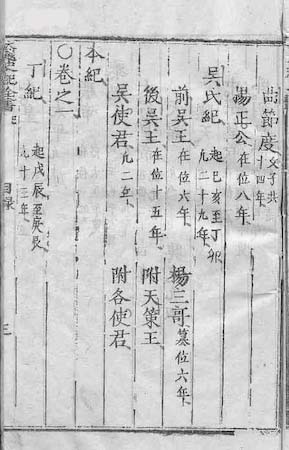 曲節度 父子共十四年
楊正公 在位八年
吳氏紀 起己亥至丁卯凡二十九年
前吳王 在位六年 楊三哥 篡位六年
後吳王 在位十五年 附天策王
吳使君 凡二年 附各使君
本紀
○卷之一
丁紀 起戊辰至庚辰凡十三年
記全書 目錄 三